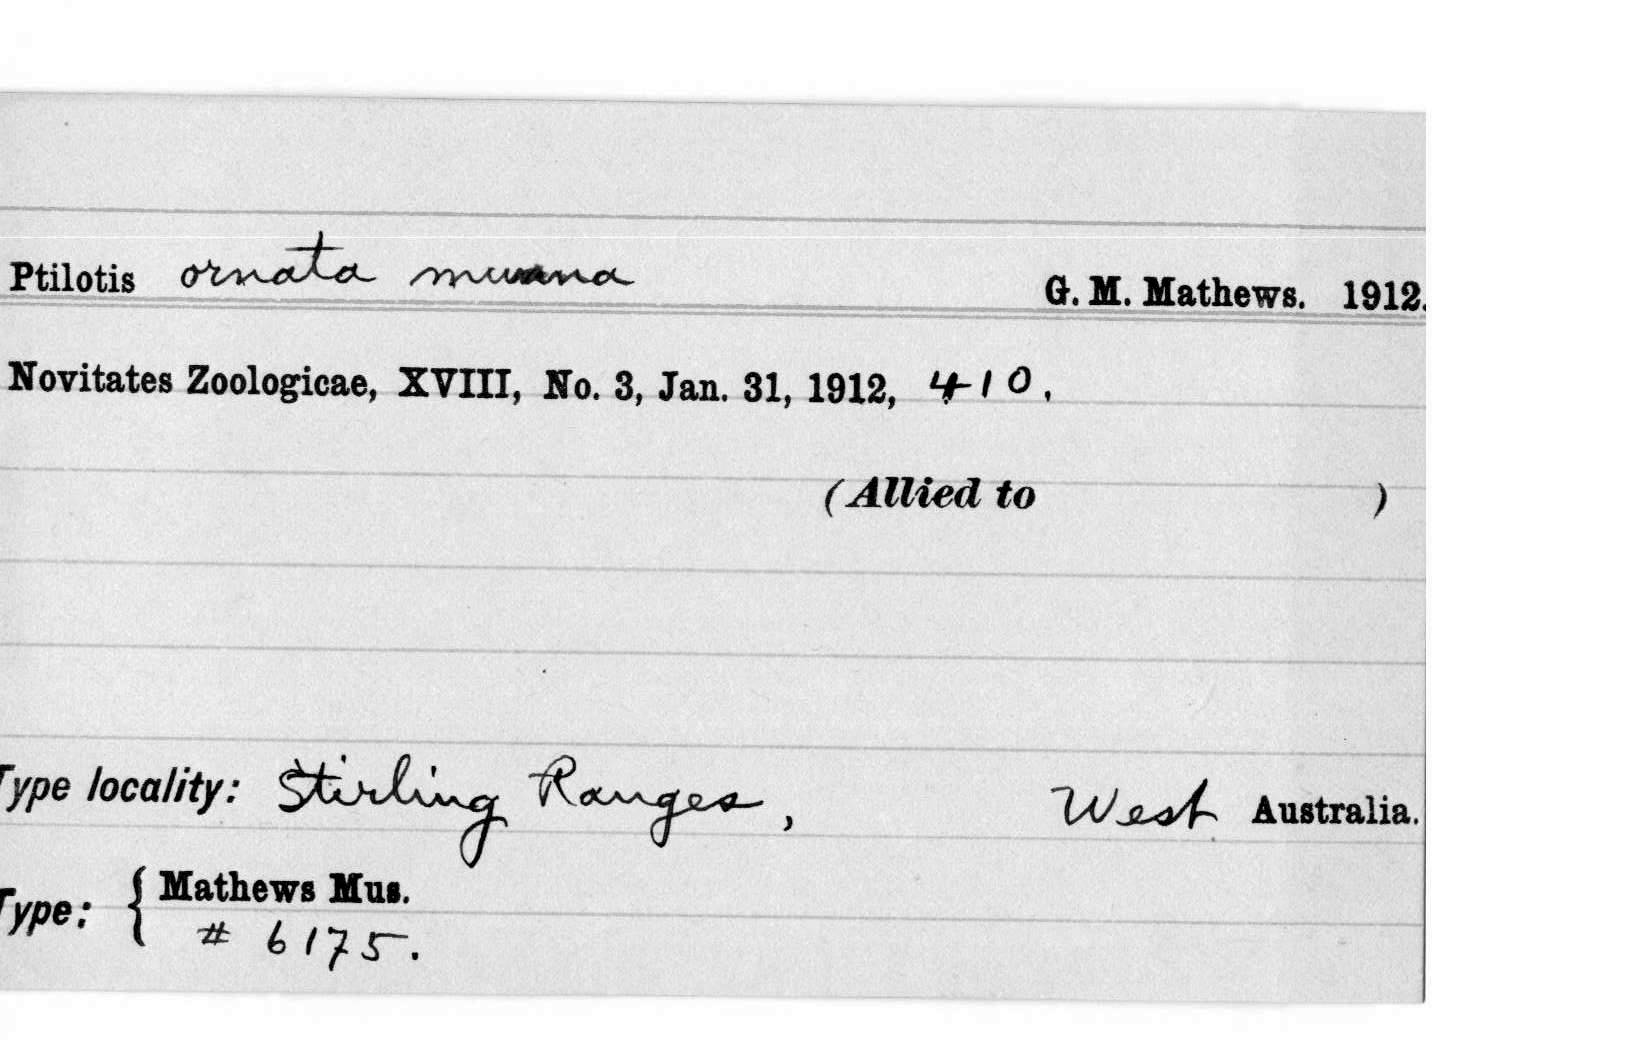 Ptilotis ornata G. M. Mathews. 1912.
Novitates Zoologicae, XVIII, No. 3, Jan. 31, 1912, 410.
(Allied to )
Type locality: Stirling Ranges, West Australia.
Type: { Mathews Mus.
# 6175.